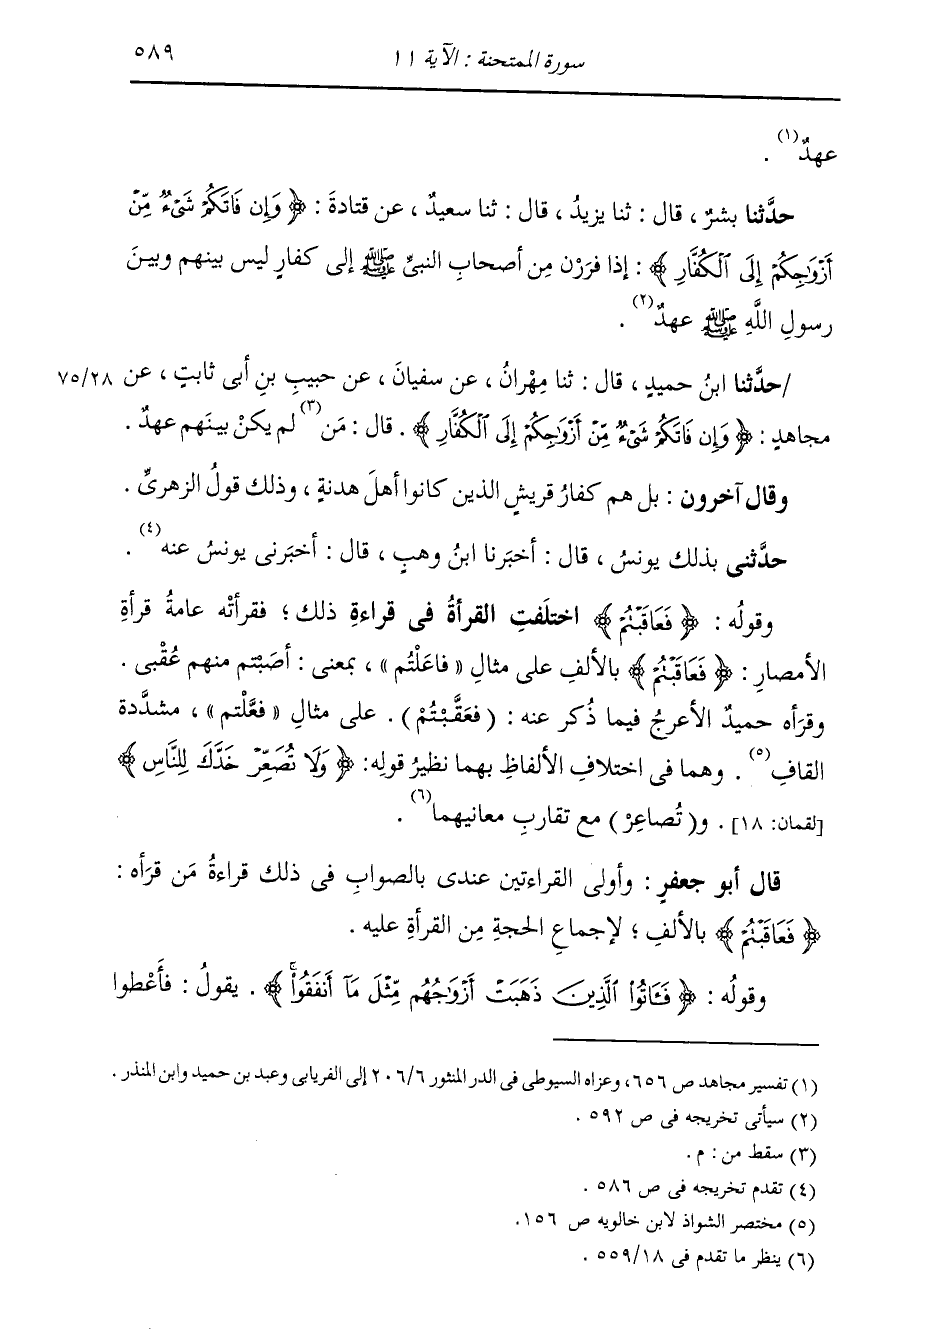 سورة الممتحنة : الآية ١١
٥٨٩
عهدٌ(١) .
حدَّثنا بشرٌ ، قال : ثنا يزيدُ ، قال : ثنا سعيدٌ ، عن قتادةَ : ﴿ وَإِن فَاتَكُمْ شَىْءٌ مِّنْ
أَزْوَٰجِكُمْ إِلَى ٱلْكُفَّارِ ﴾ : إذا فرَرْن مِن أصحابِ النبىِّ ﷺ إلى كفارٍ ليس بينهم وبينَ
رسولِ اللَّهِ ﷺ عهدٌ(٢) .
/حدَّثنا ابنُ حميدٍ ، قال : ثنا مِهْرانُ ، عن سفيانَ ، عن حبيبِ بنِ أبى ثابتٍ ، عن ٧٥/٢٨
مجاهدٍ : ﴿ وَإِن فَاتَكُمْ شَىْءٌ مِّنْ أَزْوَٰجِكُمْ إِلَى ٱلْكُفَّارِ ﴾ . قال : مَن(٣) لم يكنْ بينَهم عهدٌ .
وقال آخرون : بل هم كفارُ قريشٍ الذين كانوا أهلَ هدنةٍ ، وذلك قولُ الزهرىِّ .
حدَّثنى بذلك يونسُ ، قال : أخبَرنا ابنُ وهبٍ ، قال : أخبَرنى يونسُ عنه(٤) .
وقولُه : ﴿ فَعَاقَبْتُمْ ﴾ اختلَفتِ القرأةُ فى قراءةِ ذلك ؛ فقرأتْه عامةُ قرأةِ
الأمصارِ : ﴿ فَعَاقَبْتُمْ ﴾ بالألفِ على مثالِ « فاعَلْتُم » ، بمعنى : أصَبْتم منهم عُقْبى .
وقرَأه حميدٌ الأعرجُ فيما ذُكر عنه : ( فعَقَّبْتُمْ ) . على مثالِ « فعَّلْتم » ، مشدَّدةَ
القافِ(٥) . وهما فى اختلافِ الألفاظِ بهما نظيرُ قولِه: ﴿ وَلَا تُصَعِّرْ خَدَّكَ لِلنَّاسِ ﴾
[لقمان: ١٨] . و( تُصاعِرْ ) مع تقاربِ معانيهما(٦) .
قال أبو جعفرٍ : وأولى القراءتين عندى بالصوابِ فى ذلك قراءةُ مَن قرَأه :
﴿ فَعَاقَبْتُمْ ﴾ بالألفِ ؛ لإجماعِ الحجةِ مِن القرأةِ عليه .
وقولُه : ﴿ فَـَٔاتُوا۟ ٱلَّذِينَ ذَهَبَتْ أَزْوَٰجُهُم مِّثْلَ مَآ أَنفَقُوا۟ۚ ﴾ . يقولُ : فأَعْطوا
(١) تفسير مجاهد ص ٦٥٦، وعزاه السيوطى فى الدر المنثور ٢٠٦/٦ إلى الفريابى وعبد بن حميد وابن المنذر .
(٢) سيأتى تخريجه فى ص ٥٩٢ .
(٣) سقط من : م .
(٤) تقدم تخريجه فى ص ٥٨٦ .
(٥) مختصر الشواذ لابن خالويه ص ١٥٦.
(٦) ينظر ما تقدم فى ٥٥٩/١٨ .